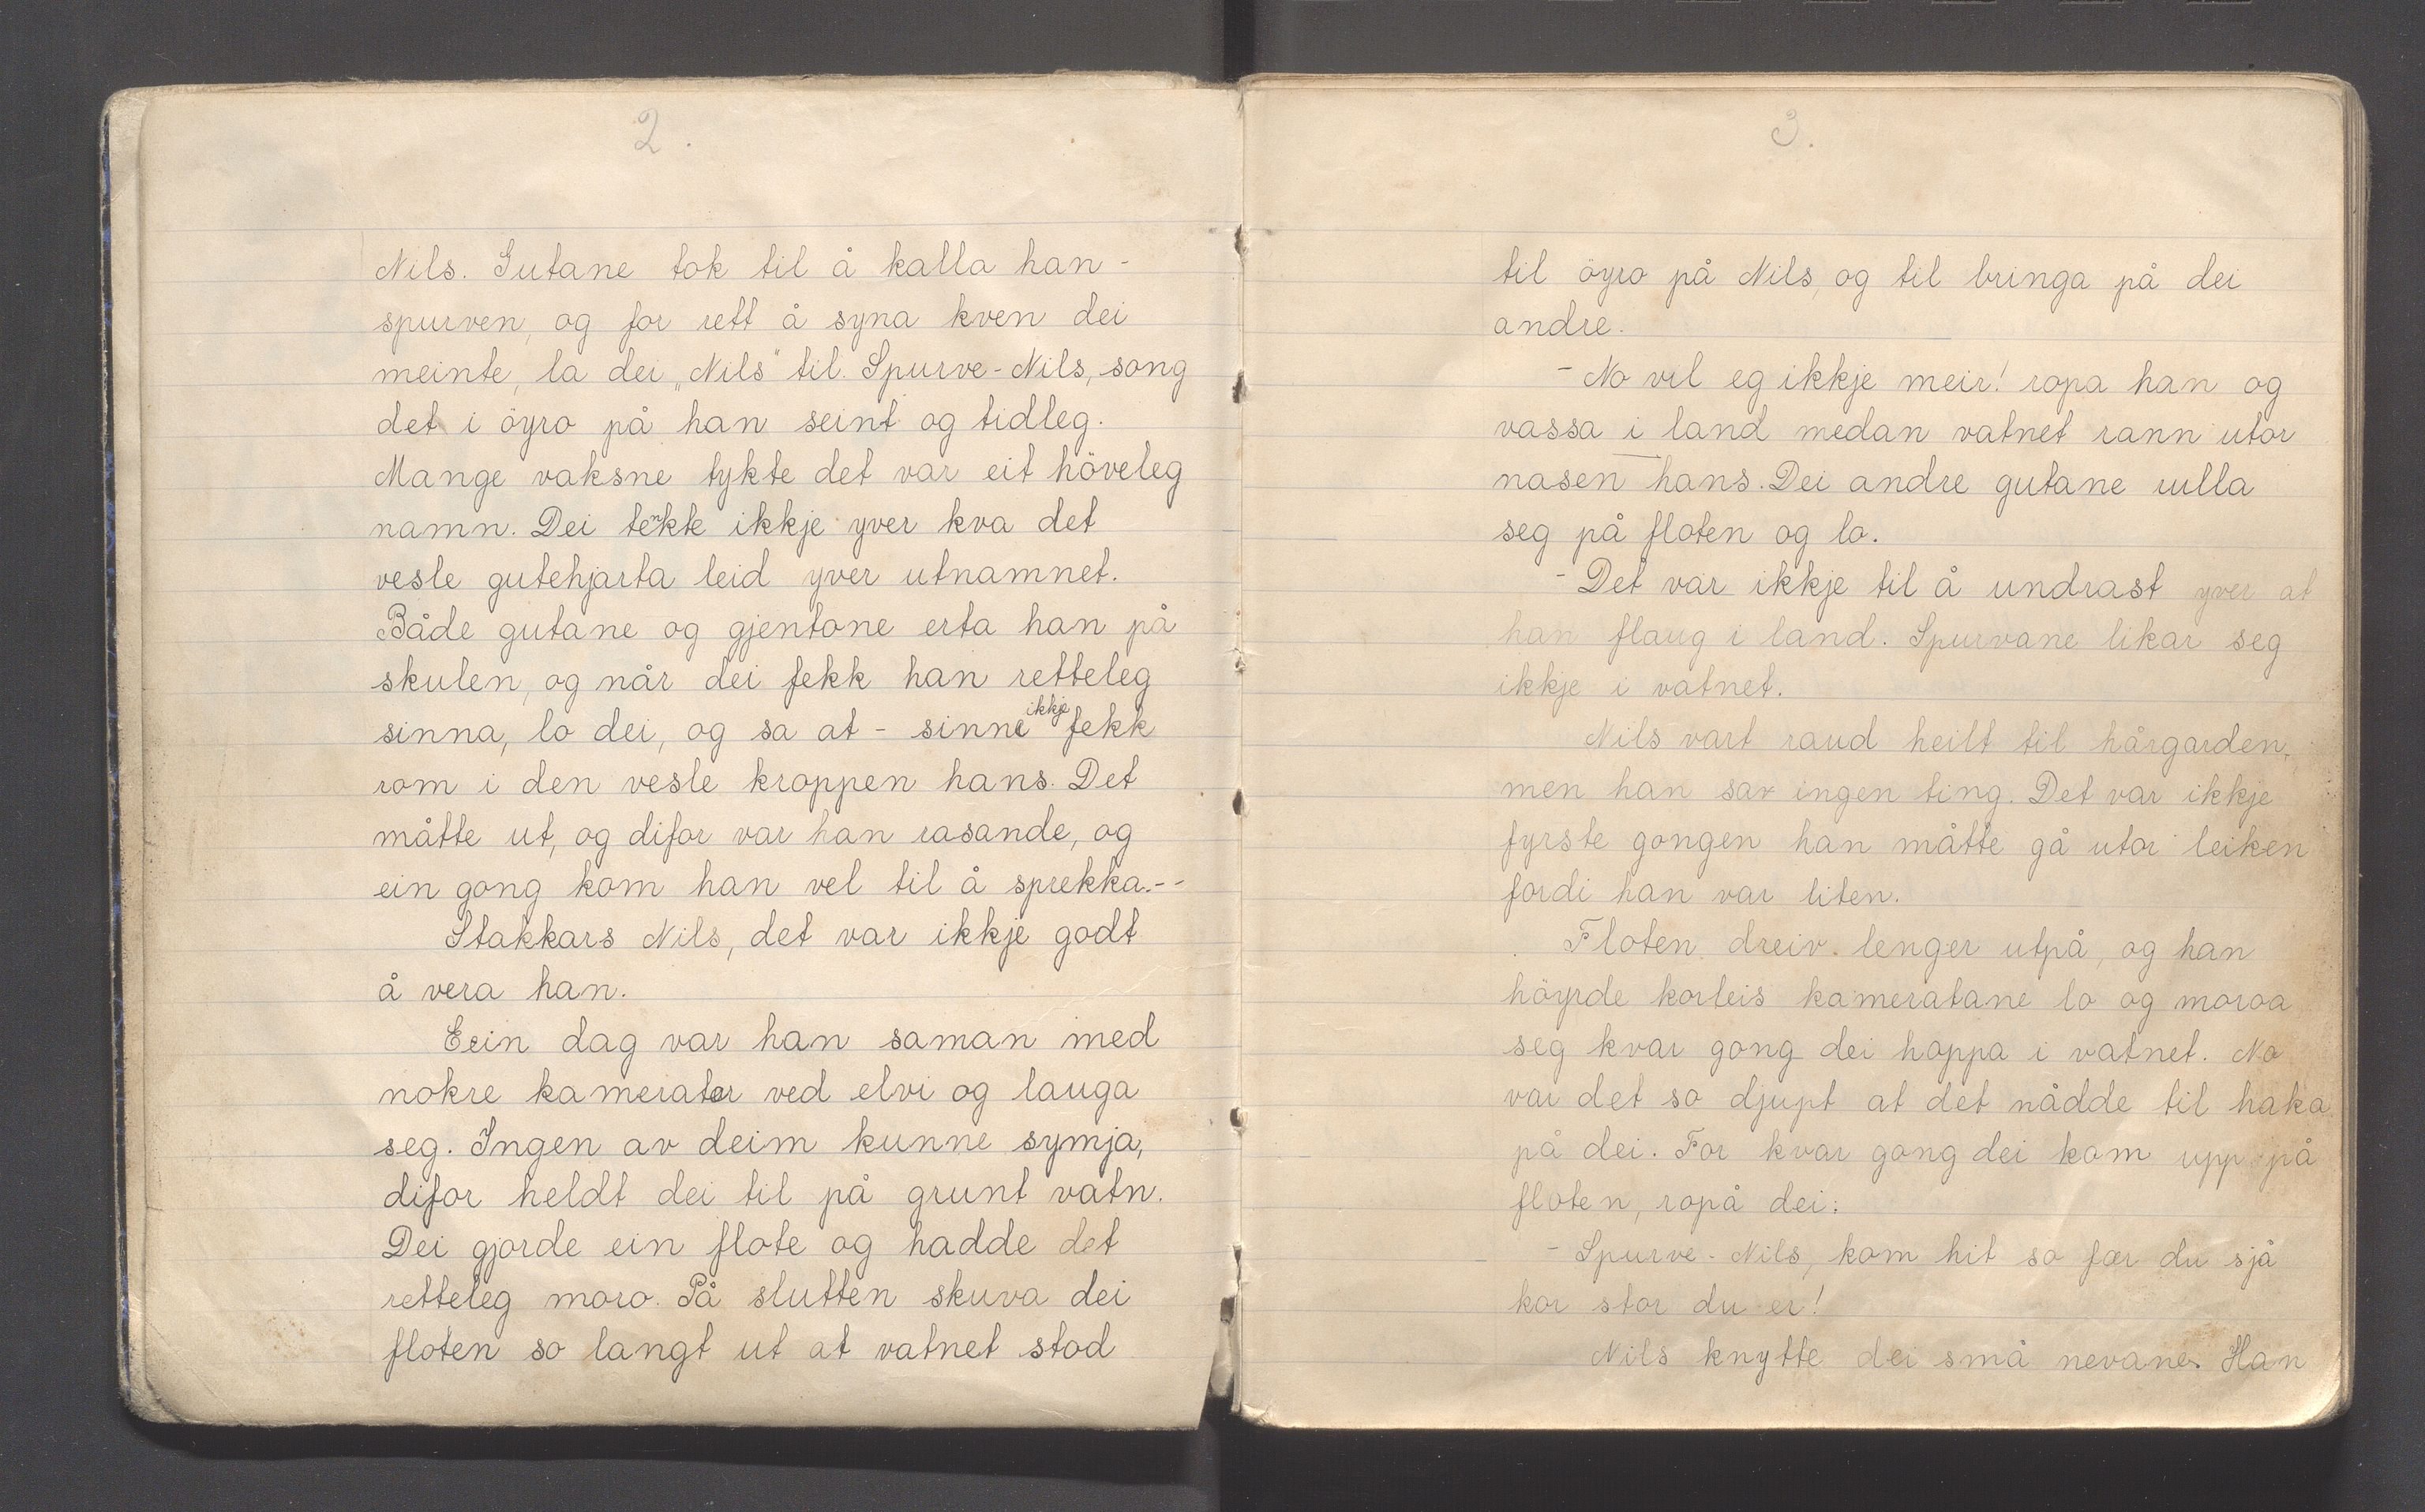 2.
Nils. Gutane tok til å kalla han -
spurven, og for rett å syna kven dei
meinte, la dei „Nils" til. Spurve-Nils, song
det i öyro på han seint og tidleg.
Mange vaksne tykte det var eit höveleg
namn. Dei tenkte ikkje yver kva det
vesle gutehjarta leid yver utnamnet.
Både gutane og gjentone erta han på
skulen, og når dei fekk han retteleg
sinna, lo dei, og sa at - sinne ikkje fekk
rom i den vesle kroppen hans. Det
måtte ut, og difor var han rasande, og
ein gong kom han vel til å sprekka.--
Stakkars Nils, det var ikkje godt
å vera han.
Eein dag var han saman med
nokre kamerater ved elvi og lauga
seg. Ingen av deim kunne symja,
difor heldt dei til på grunt vatn.
Dei gjorde ein flote og hadde det
retteleg moro. På slutten skuva dei
floten so langt ut at vatnet stod
3.
til öyro på Nils, og til bringa på dei
andre.
- No vil eg ikkje meir! ropa han og
vassa i land medan vatnet rann utor
nasen hans. Dei andre gutane rulla
seg på floten og lo.
- Det var ikkje til å undrast yver at
han flaug i land. Spurvane likar seg
ikkje i vatnet.
Nils vart raud heilt til hårgarden,
men han sav ingen ting. Det var ikkje
fyrste gongen han måtte gå utor leiken
fordi han var liten.
Floten dreiv lenger utpå, og han
höyrde korleis kameratane lo og moroa
seg kvar gong dei hoppa i vatnet. No
var det so djupt at det nådde til haka
på dei. For kvar gong dei kom upp på
floten, ropå dei:
- Spurve-Nils, kom hit so fær du sjå
kor stor du er!
Nils knytte dei små nevane. Han